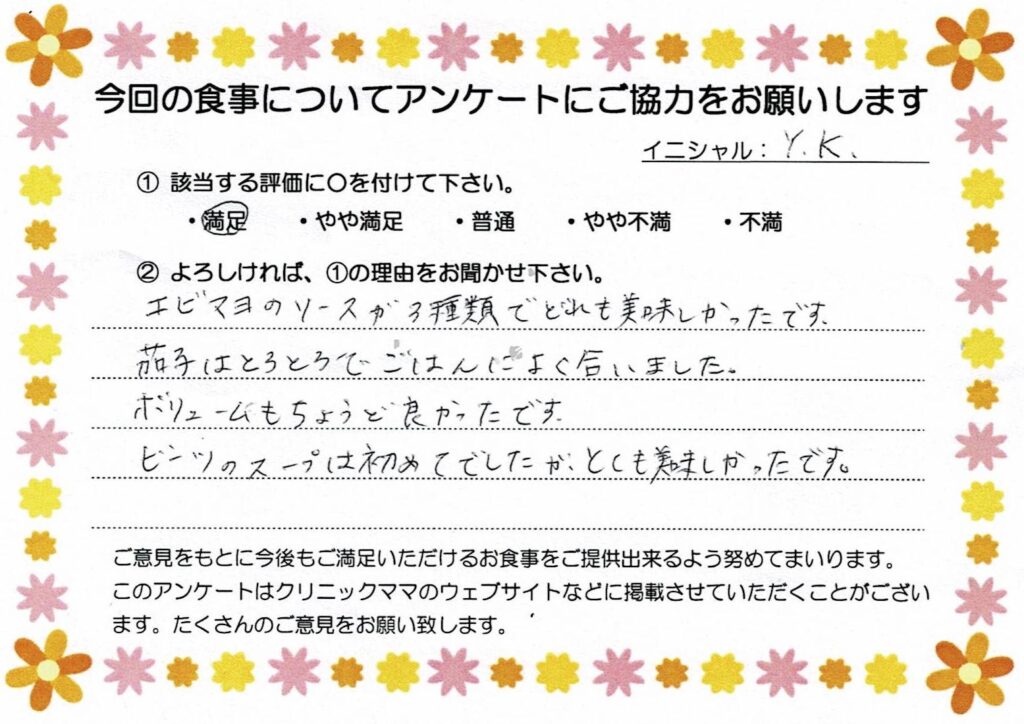 今回の食事についてアンケートにご協力をお願いします
イニシャル：Y.K.
① 該当する評価に〇を付けて下さい。
・満足 ・やや満足 ・普通 ・やや不満 ・不満
② よろしければ、①の理由をお聞かせ下さい。
エビマヨのソースが3種類でどれも美味しかったです。
茄子はとろとろでごはんによく合いました。
ボリュームもちょうど良かったです。
ビーンツのスープは初めてでしたが、とても美味しかったです。
ご意見をもとに今後もご満足いただけるお食事をご提供出来るよう努めてまいります。
このアンケートはクリニックママのウェブサイトなどに掲載させていただくことがござい
ます。たくさんのご意見をお願い致します。